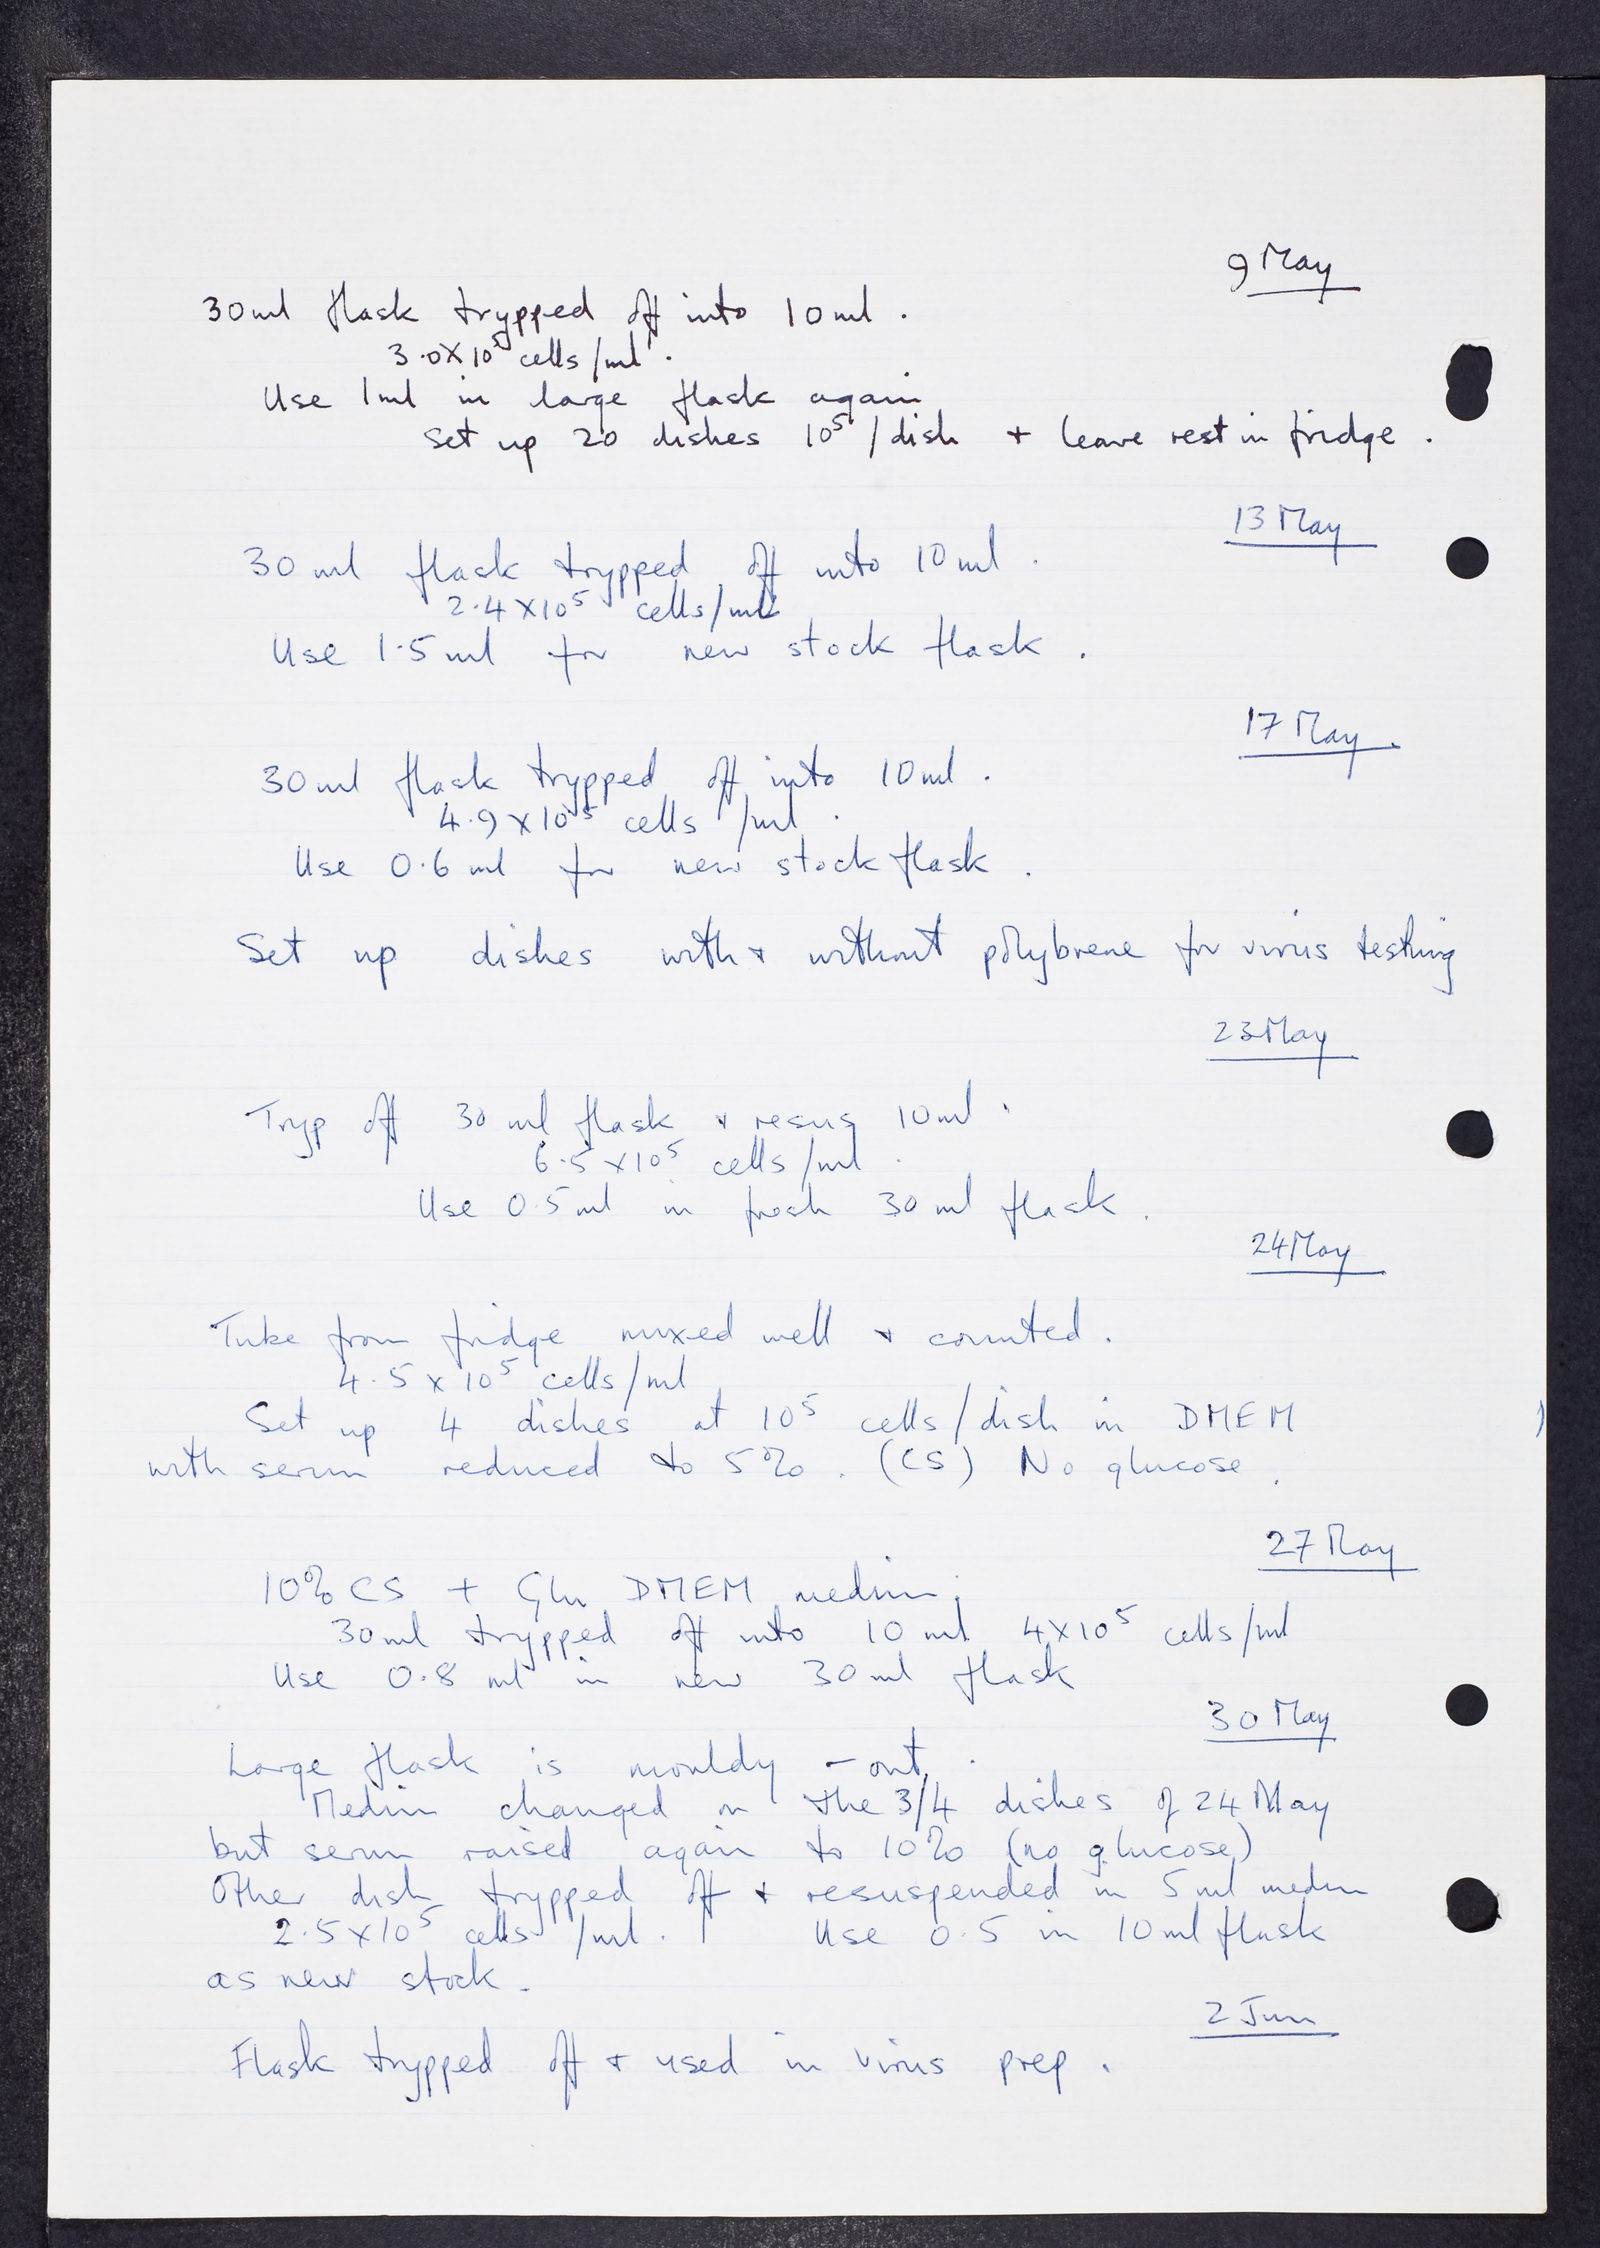 9 May
30ml flask trypped off into 10ml.
3.0X10⁵ cells/ml.
Use 1ml in large flask again
Set up 20 dishes 10⁵/dish + leave rest in fridge.
13 May
30ml flask trypped off into 10ml.
2.4X10⁵ cells/ml
Use 1.5ml for new stock flask.
17 May.
30ml flask trypped off into 10ml.
4.9X10⁵ cells/ml.
Use 0.6ml for new stock flask.
Set up dishes with + without polybrene for virus testing
23 May
Tryp off 30ml flask + resus 10ml.
6.5X10⁵ cells/ml.
Use 0.5ml in fresh 30ml flask.
24 May
Tube from fridge mixed well + counted.
4.5X10⁵ cells/ml
Set up 4 dishes at 10⁵ cells/dish in DMEM
with serum reduced to 5%. (CS) No glucose.
27 May
10% CS + Glu DMEM medium.
30ml trypped off into 10ml 4X10⁵ cells/ml
Use 0.8ml in new 30ml flask
30 May
Large flask is mouldy - out.
Medium changed on the 3/4 dishes of 24 May
but serum raised again to 10% (no glucose)
Other dish trypped off + resuspended in 5ml medium
2.5X10⁵ cells/ml. Use 0.5 in 10ml flask
as new stock.
2 Jun
Flask trypped off + used in virus prep.